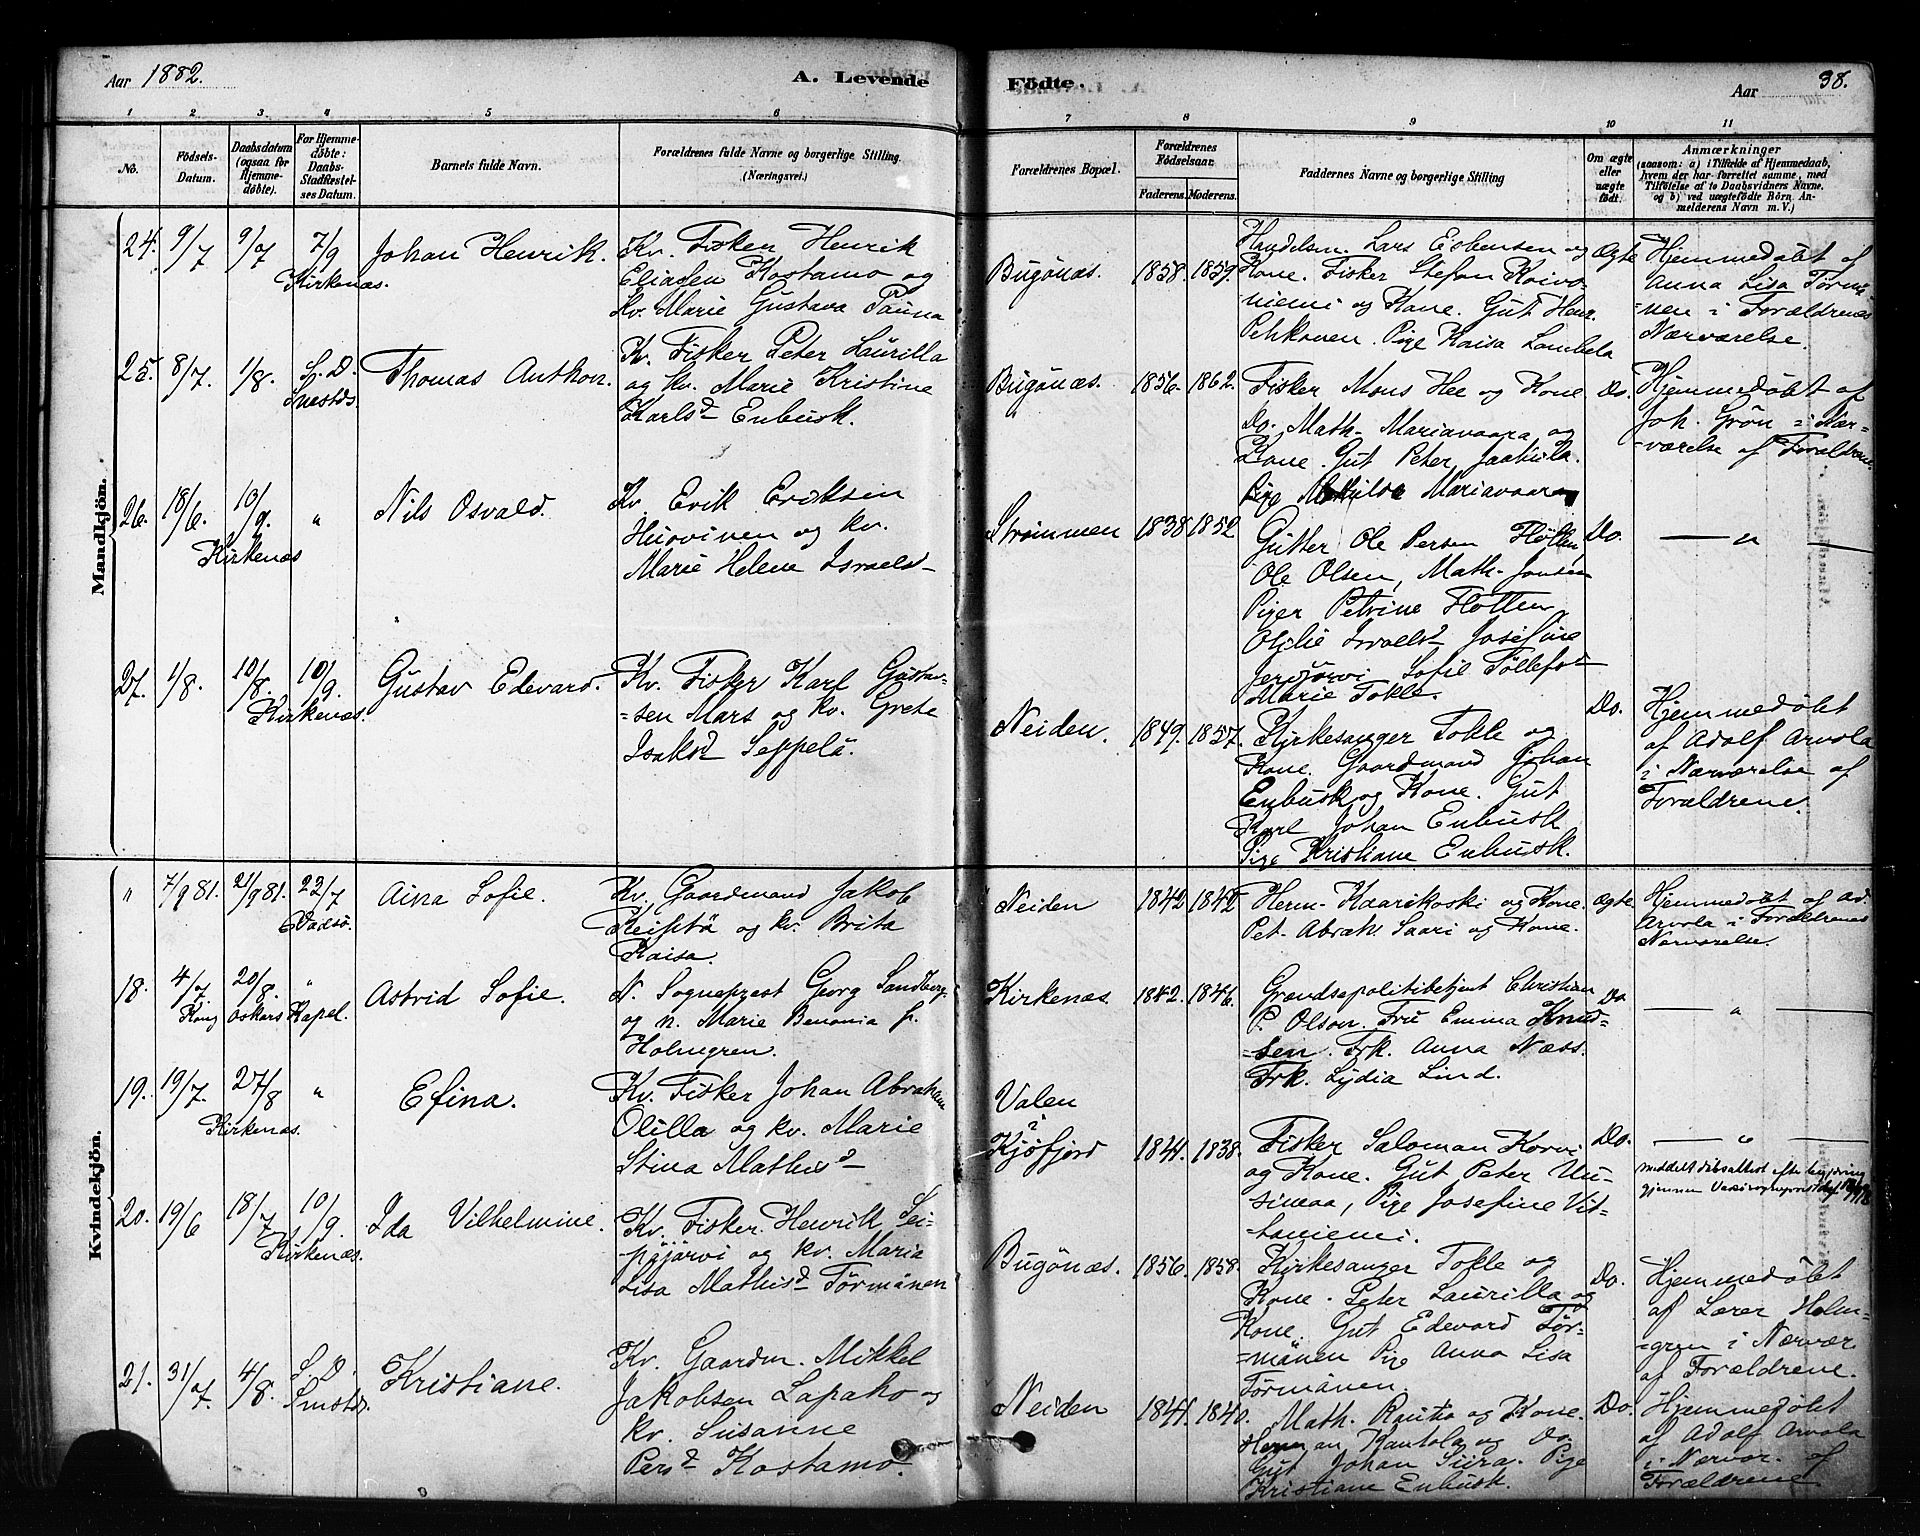 Aar 1882.
A. Levende
Födte.
Aar
38.
1 2 3. 4 5 6 7 8 9 10 11
No.
Födsels-Datum.
Daabsdatum (ogsaa for Hjemmedöbte).
For Hjemmedöbte: Daabs-Stadfæstelses Datum.
Barnets fulde Navn.
Forældrenes fulde Navne og borgerlige Stilling.
(Næringsvei.)
Forældrenes Bopæl.
Forældrenes Födselsaar.
Faderens. Moderens.
Faddernes Navne og borgerlige Stilling
Om ægte eller uægte födt.
Anmærkninger
(saasom: a) i Tilfælde af Hjemmedaab, hvem der har forrettet samme, med Tilföielse af to Daabsvidners Navne. og b) ved uægtefödte Börn Anmelderens Navn m. V.)
Mandkjön.
24. 9/7 9/7 7/9 Kirkenæs. Johan Henrik.
Kv. Fisker Henrik
Eliasen Kostamo og
kv. Marie Gustava Pauna
Bugönæs. 1858. 1859.
Handelsm. Lars Esbensen og
Kone. Fisker Stefan Koivo-
niemi og Kone. Gut Henr.
Pehkonen. Pige Kaisa Lambela
Ægte
Hjemmedöbt af
Anna Lisa Törmä-
=nen i Forældrenes
Nærværelse.
25. 8/7. 1/8. S. D. Thomas Anthon.
Kv. Fisker Peter Laurilla
og kv. Marie Kristine
Karlsd Enbusk.
Bugönæs. 1856. 1862.
Fisker Mons Hee og Kone
Do. Math. Mariavaara og
Kone. Gut Peter Jaakula.
Pige Mariavaara
Do.
Hjemmedöbt af
Joh. Grön i Nær-
=værelse af Forældrene
26. 18/6. 10/9. Kirkenæs " Nils Osvald.
Kv. Erik Eriksen
Huovinen og kv.
Marie Helene Israelsd
Strömmen 1838 1852
Gutter Ole Persen Flötten
Ole Olsen, Math. Jonsen
Piger Petrine Flotten
Israelsd Josefine
Jerijärvi Sofie
Marie Tokle.
Do.
— " —
27. 1/8. 10/8. 10/9. Kirkenæs. Gustav Edevard.
Kv. Fisker Karl Gustav-
=sen Mars og kv. Grete
Isaksd Seppelä.
Neiden. 1849. 1857.
Kirkesanger Tokle og
Kone. Gaardmand Johan
Enbusk og Kone. Gut
Karl Johan Enbusk
Pige Kristiane Enbusk.
Do.
Hjemmedöbt
af Adolf Arvola
i Nærværelse af
Forældrene.
Kvindekjön.
" 7/9 81. 21/9 81. 22/7 Vadsö. Aina Sofie.
Kv. Gaardmand Jakob
og kv. Brita
Kaisa.
Neiden 1842 1842
Herm. Kaarikoski og Kone.
Pet. Abrah. Saari og Kone.
Ægte.
Hjemmedöbt af Ad.
Arvola i Forældrenes
Nærværelse.
18. 4/7 20/8. " Kong Oskars Kapel. Astrid Sofie.
N. Sogneprest Georg Sandberg
og n. Marie Benonia f.
Holmgren.
Kirkenæs 1842. 1846.
Grændsepolitibetjent Christian
P. Olsen. Fru Emma Knud-
=sen. Frk. Anna Næss.
Frk. Lydia Lind.
Do
— " —
19. 19/7. 27/8 Kirkenæs. " Efina.
Kv. Fisker Johan Abraham
Olilla og kv. Marie
Stina Mathisd
Valen
i
Kjöfjord 1841. 1838.
Fisker Saloman Korvi
og Kone. Gut Peter Uu-
simaa, Pige Josefine Vit-
taniemi.
Do.
— " —
20. 19/6 18/7 10/9. Kirkenæs. Ida Vilhelmine.
Kv. Fisker Henrik Sei-
päjärvi og kv. Maria
Lisa Mathisd Törmänen
Bugönæs. 1856. 1858.
Kirkesanger Tokle og
Kone. Peter Laurilla og
Kone. Gut Edevard Tör-
=mänen Pige Anna Lisa
Törmänen
Do.
Hjemmedöbt
af Lærer Holm-
=gren i Nærvær
af Forældrene.
21. 31/7 4/8. S. D. Kristiane.
Kv. Gaardm. Mikkel
Jakobsen Lapako og
kv. Susanne
Persd Kostamo.
Neiden 1841. 1840.
Math. Rautio og Kone.
Herman Kantola og Do.
Gut Johan Siira. Pige
Kristiane Enbusk.
Do.
Hjemmedöbt
af Adolf Arvola
i Nærvær. af
Forældrene